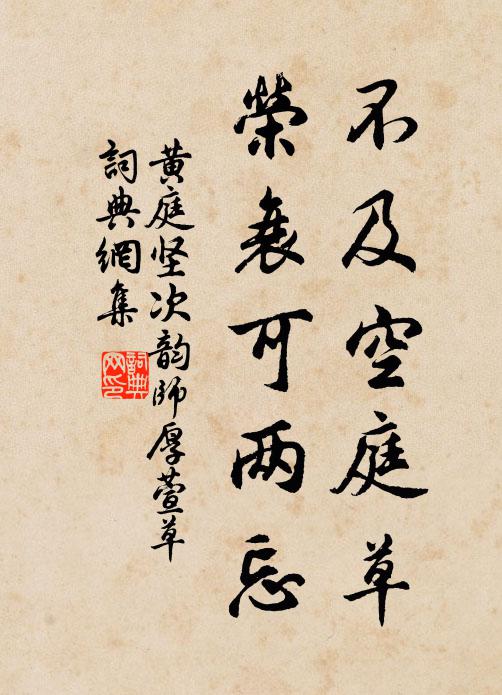 不及空庭草
榮衰可两忘
黄庭坚次韵師厚萱草
詞典網集
詞典网印